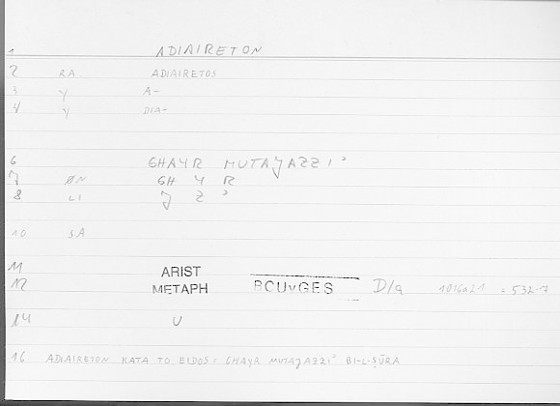 1 ADIAIRETON
2 RA ADIAIRETOS
3 Y A-
4 Y DIA-
6 GHAYR MUTAJAZZI'
7 ØN GH Y R
8 LI J Z '
10 SA
11 ARIST
12 METAPH BOUYGES D/q = 532.7
14 U
16 ADIAIRETON KATA TO EIDOS = GHAYR MUTAJAZZI' BI-L-ṢŪRA